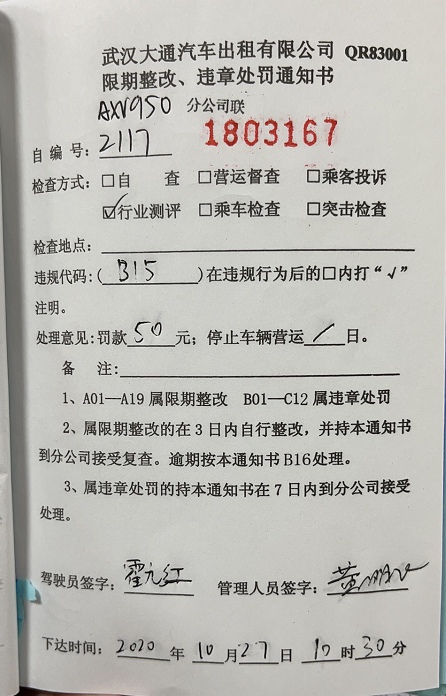 武汉大通汽车出租有限公司 QR83001
限期整改、违章处罚通知书
AXV950 分公司联
自编号: 2117 1803167
检查方式: □自 查 □营运督查 □乘客投诉
☑行业测评 □乘车检查 □突击检查
检查地点:
违规代码:( B15 )在违规行为后的□内打“√”
注明。
处理意见:罚款 50 元; 停止车辆营运 / 日。
备 注:
1、A01—A19 属限期整改 B01—C12 属违章处罚
2、属限期整改的在 3 日内自行整改,并持本通知书
到分公司接受复查。逾期按本通知书 B16 处理。
3、属违章处罚的持本通知书在 7 日内到分公司接受
处理。
驾驶员签字: 霍元红 管理人员签字: 黄
下达时间: 2020 年 10 月 27 日 10 时 30 分